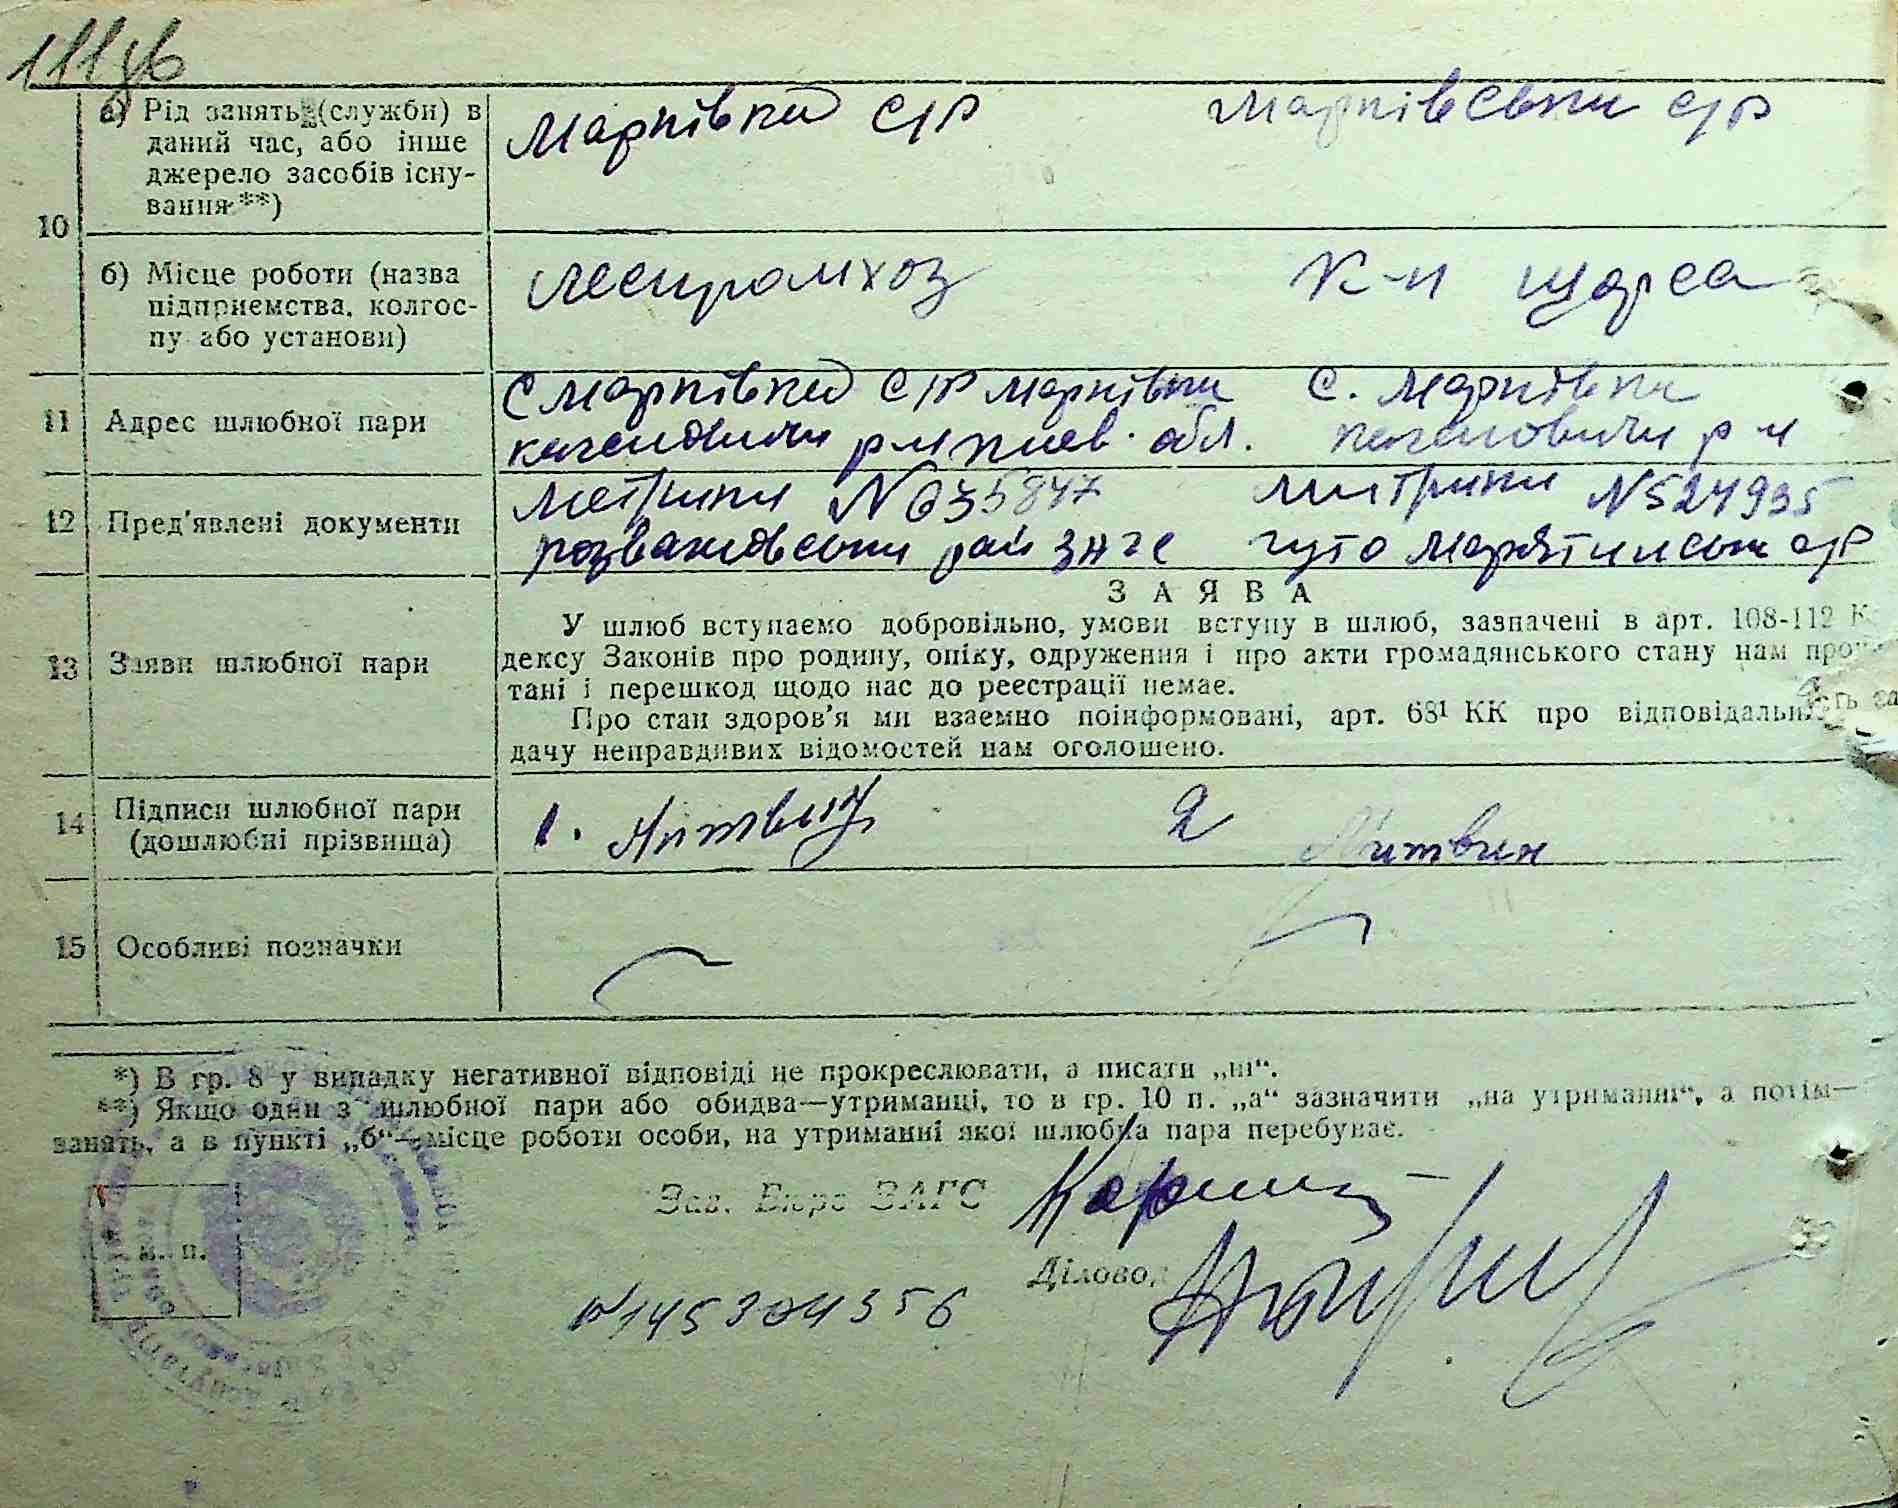 111зв
10
а) Рід занять (служби) в
даний час, або інше
джерело засобів існу-
вання **)
Марківка С/Р
Марківськи С/Р
б) Місце роботи (назва
підприємства, колгос-
пу або установи)
Леспромхоз
К-п Щорса
11
Адрес шлюбної пари
С Марківка С/Р Марківки
обл.
с. Марківка
р-н
12
Пред'явлені документи
метрики N 635847
розважовськи рай загс
метрики N 524935
С/Р
13
Заяви шлюбної пари
ЗАЯВА
У шлюб вступаємо добровільно, умови вступу в шлюб, зазначені в арт. 108-112 К
дексу Законів про родину, опіку, одруження і про акти громадянського стану нам проч
тані і перешкод щодо нас до реестрації немає.
Про стан здоров'я ми взаємно поінформовані, арт. 68¹ КК про відповідальність за
дачу неправдивих відомостей нам оголошено.
14
Підписи шлюбної пари
(дошлюбні прізвища)
1. Литвин
2 Литвин
15
Особливі позначки
*) В гр. 8 у випадку негативної відповіді не прокреслювати, а писати „ні“.
**) Якщо один з шлюбної пари або обидва—утриманці, то в гр. 10 п. „а“ зазначити „на утриманні“, а потім—
занять, а в пункті „б“—місце роботи особи, на утриманні якої шлюбна пара перебуває.
Зав. Бюро ЗАГС
м. п.
Діловод
N 145304356